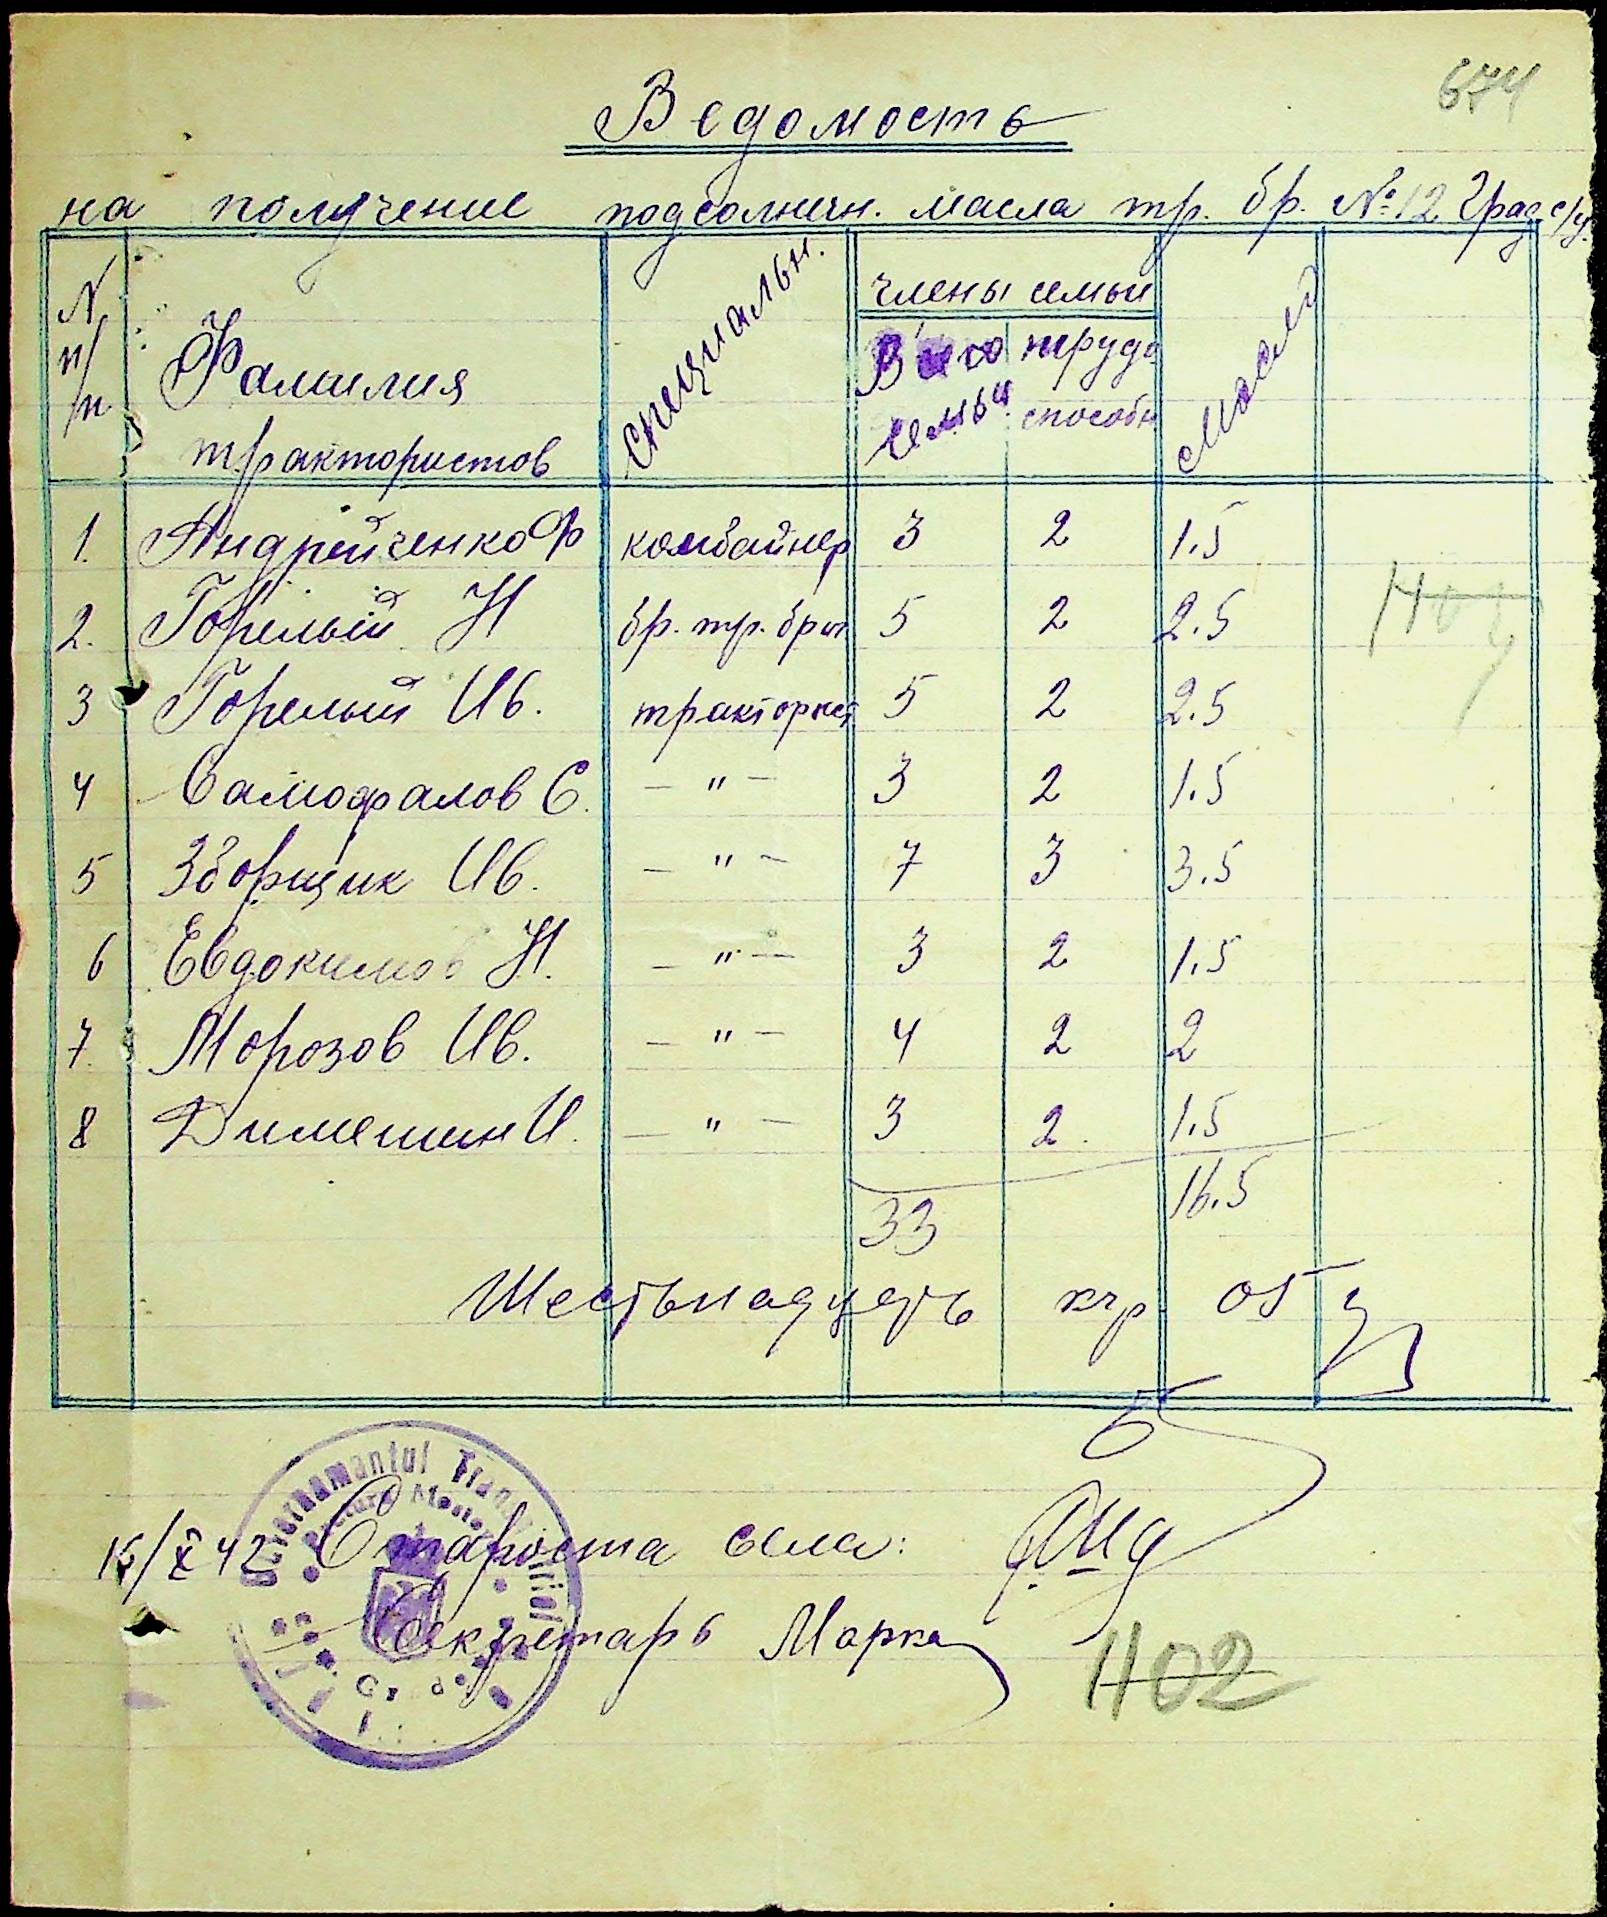 674
Ведомость
на получение подсолнечн. масла тр. бр. №12 Град. с/у.
N п/п Фамилия трактористов специальн. члены семьи масло
Всего семьи нетрудоспособн
1. Андрейченко Ф комбайнер 3 2 1.5
2. Горелый Н бр. тр. бриг 5 2 2.5
3 Горелый Ив. тракторист 5 2 2.5
4 Самофалов С. — " — 3 2 1.5
5 Зборщик Ив. — " — 7 3 3.5
6 Евдокимов Н. — " — 3 2 1.5
7. Морозов Ив. — " — 4 2 2
8 Димешин И. — " — 3 2. 1.5
33 16.5
Шестьнадцать кгр
15/X 42 Староста села:
Секретарь Марка
Guvernamantul Trans
402